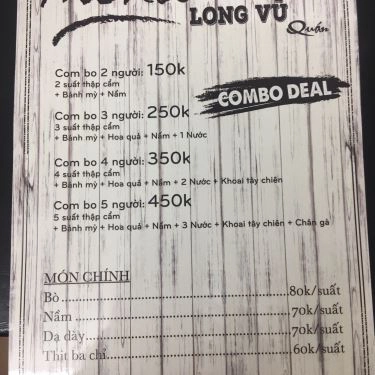 LONG VŨ
Quán
Com bo 2 người: 150k
2 suất thập cẩm
+ Bánh mỳ + Nấm
COMBO DEAL
Com bo 3 người: 250k
3 suất thập cẩm
+ Bánh mỳ + Hoa quả + Nấm + 1 Nước
Com bo 4 người: 350k
4 suất thập cẩm
+ Bánh mỳ + Hoa quả + Nấm + 2 Nước + Khoai tây chiên
Com bo 5 người: 450k
5 suất thập cẩm
+ Bánh mỳ + Hoa quả + Nấm + 3 Nước + Khoai tây chiên + Chân gà
MÓN CHÍNH
Bò 80k/suất
Nầm 70k/suất
Dạ dày 70k/suất
Thịt ba chỉ 60k/suất